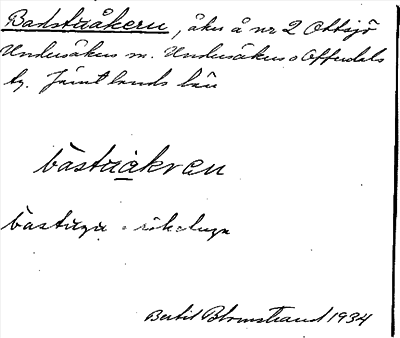 Badstuåkern, åker å nr 2 Ottsjö
Undersåkers sn. Undersåkers o Offerdals
tg. Jämtlands län
bástuákren
bástugu = rökstuga
Bertil Blomstrand 1934